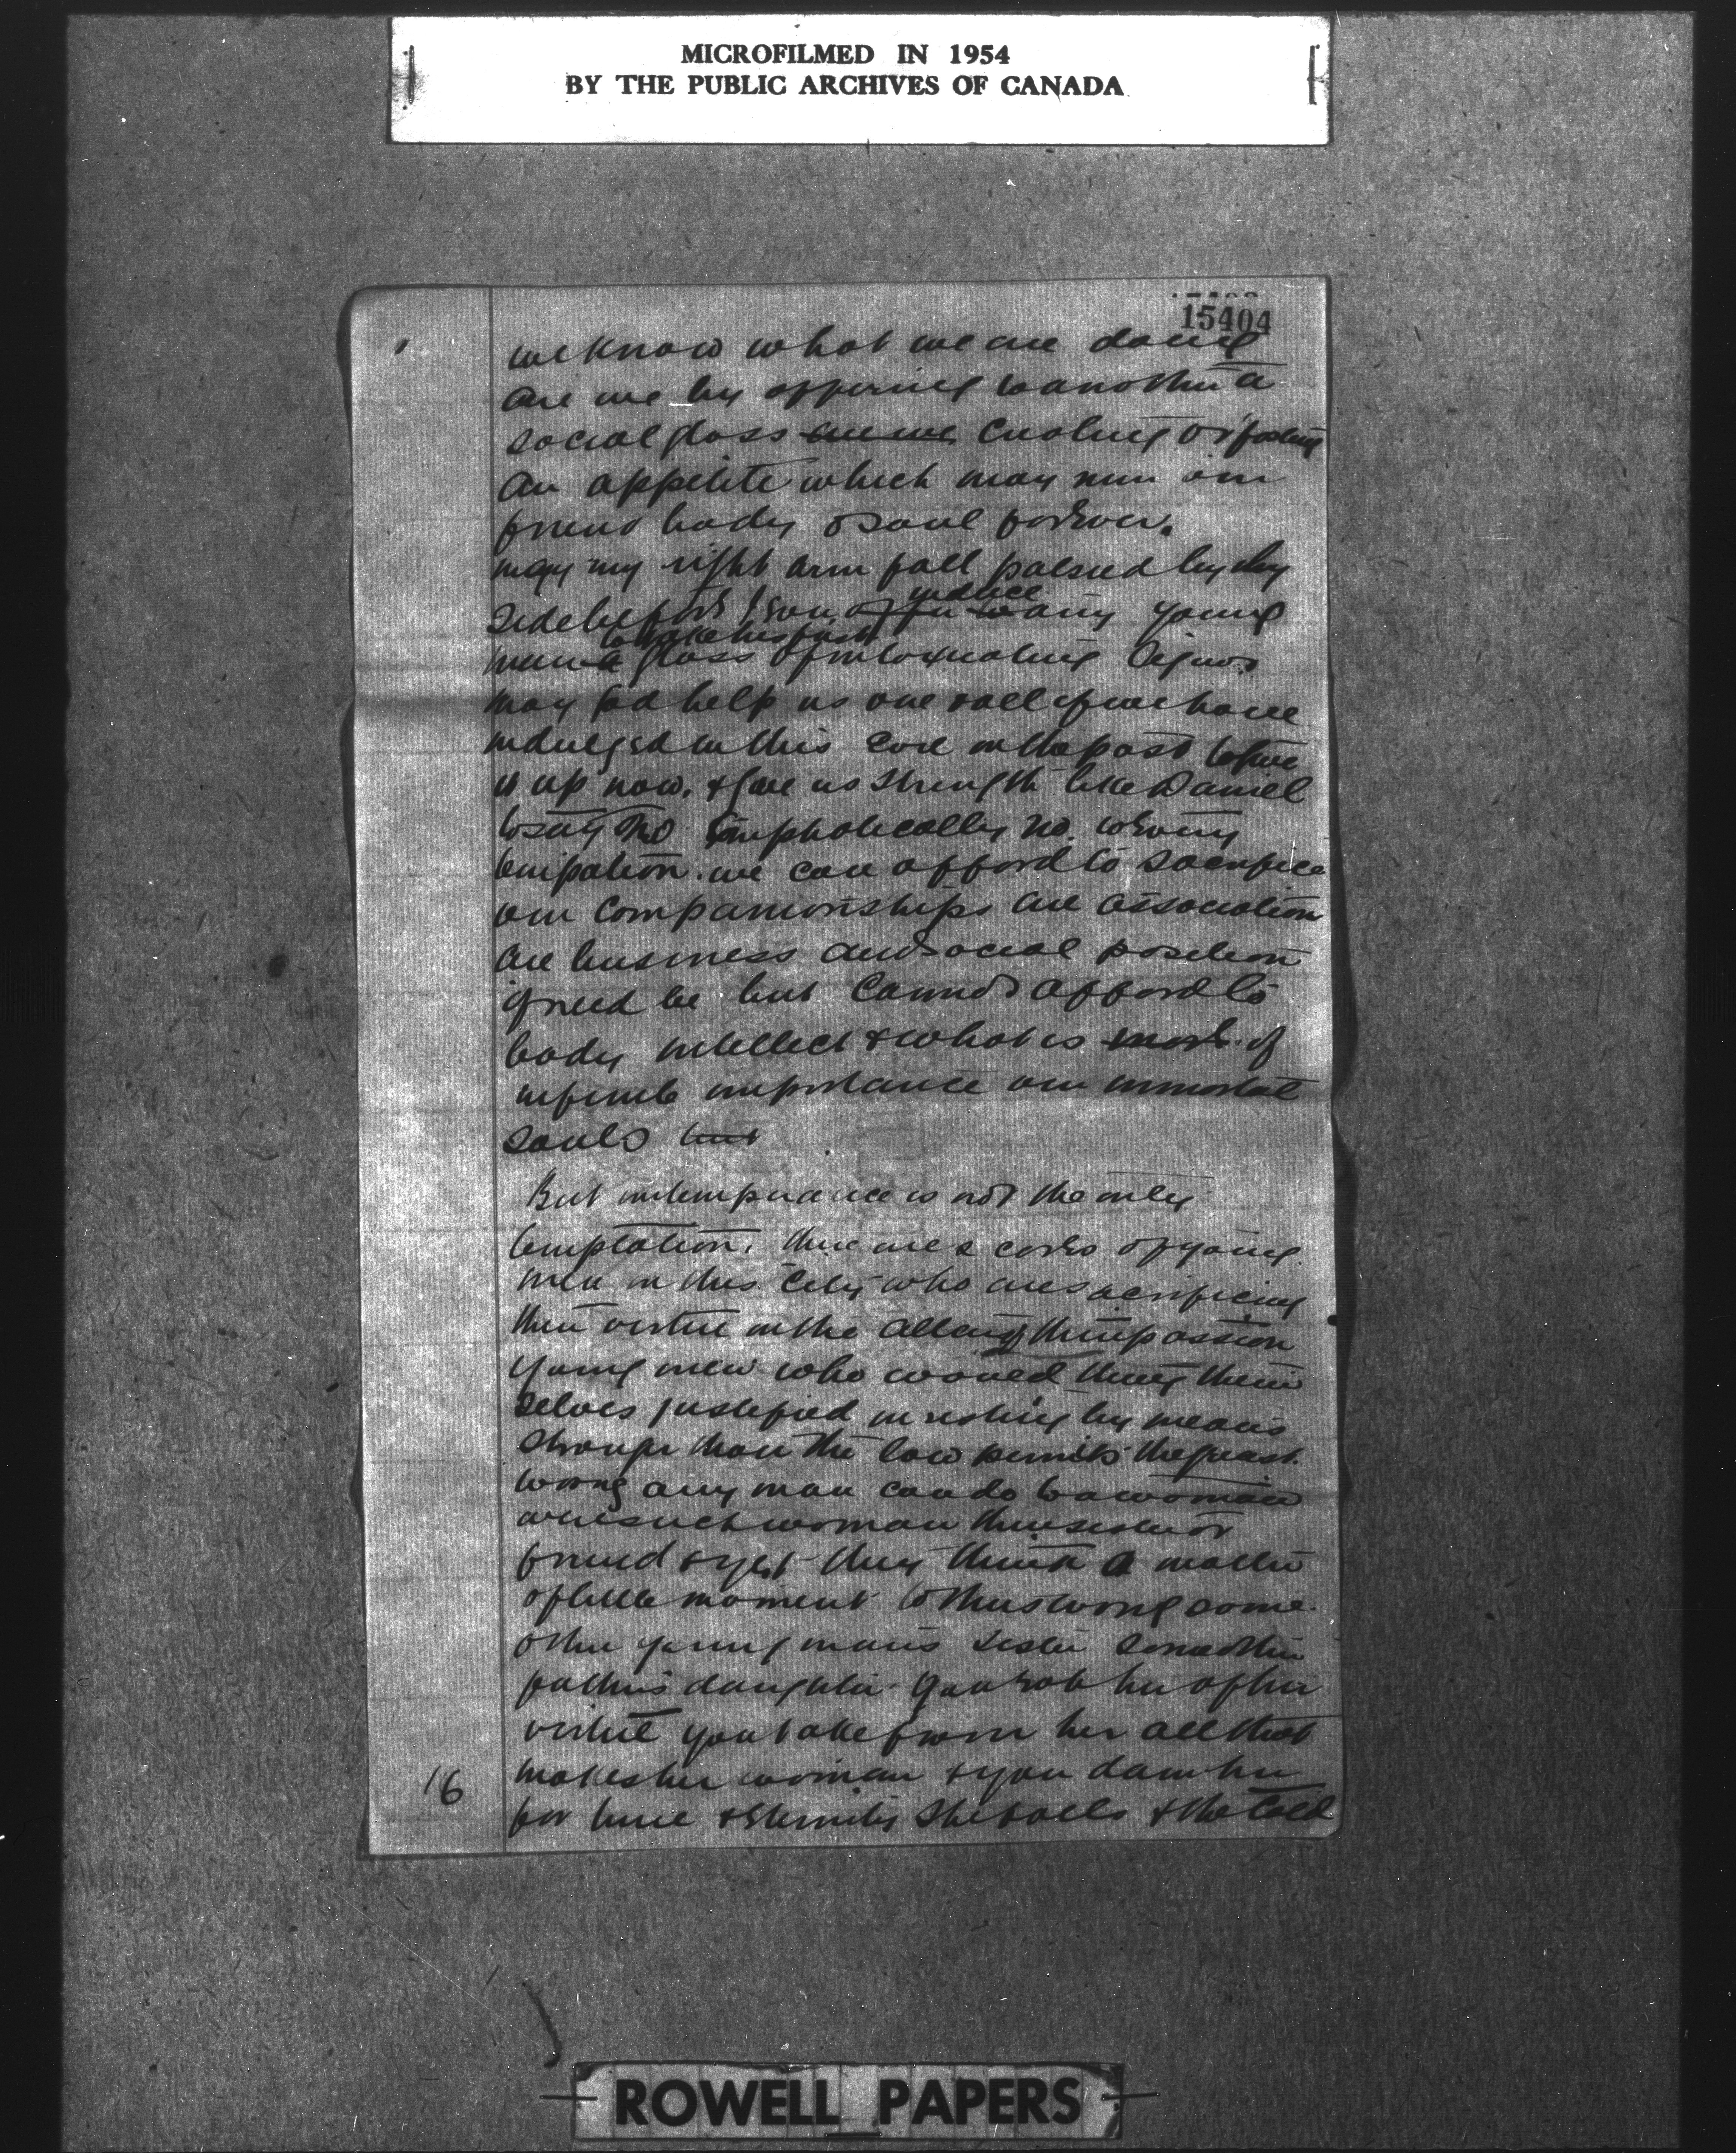 MICROFILMED IN 1954
BY THE PUBLIC ARCHIVES OF CANADA
15404
we know what we are doing
are we by offering to another a
social glass are we creating or fostering
an appetite which may ruin our
friend body & soul forever.
may my right arm fall palsied by my
side before I ever offer to induce any young
man to take his first a glass of intoxicating liquor
may God help us one & all if we have
indulged in this evil in the past to give
it up now. & give us strength like Daniel
to say no emphatically no. to every
temptation. we can afford to sacrifice
our companionships are association
are business and social position
if need be but cannot afford to
body intellect & what is more of
infinite importance our immortal
souls but
But intemperance is not the only
temptation. there are scores of young
men in this city who are sacrificing
their virtue on the altar of their passion
young men who would think them
selves justified in resisting by means
stronger than the law permits the great
wrong any man can do to a woman
were such woman their sister or
friend & yet they think a matter
of little moment to thus wrong some
other young man's sister some other
father's daughter. You rob her of her
virtue you take from her all that
makes her woman & you damn her
for time & Eternity She falls & the cold
16
ROWELL PAPERS